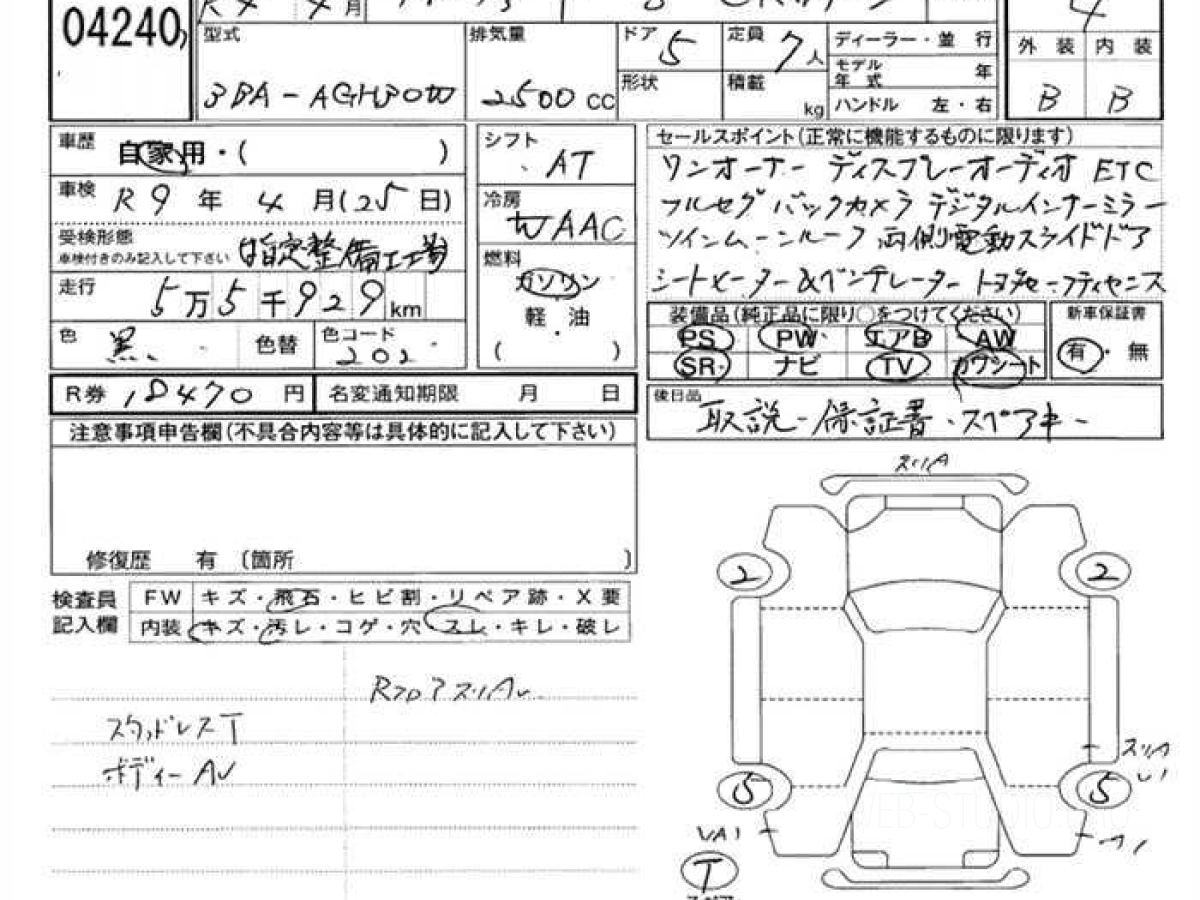 04240
R4 年 4月
型式 3BA-AGH30W
排気量 2500 cc
ドア 5
定員 7人
ディーラー・並行
モデル年式 年
形状
積載 kg
ハンドル 左・右
4
外装 内装
B B
車歴 自家用・( )
シフト AT
セールスポイント(正常に機能するものに限ります)
ワンオーナー ディスプレーオーディオ ETC
車検 R9年 4月(25日)
冷房 WAAC
フルセグ バックカメラ デジタルインナーミラー
受検形態
車検付きのみ記入して下さい 指定整備工場
ツインムーンルーフ 両側電動スライドドア
燃料 ガソリン
軽・油
( )
シートヒーター&ベンチレーター トヨタセーフティセンス
走行 5万5千929km
装備品(純正品に限り○をつけてください)
新車保証書
PS PW エアB AW
有・無
SR ナビ TV カワシート
色 黒
色替
色コード 202
R券 18470 円
名変通知期限 月 日
後日品 取説-保証書・スペアキー
注意事項申告欄(不具合内容等は具体的に記入して下さい)
修復歴 有 〔箇所 〕
検査員
記入欄
FW キズ・飛石・ヒビ割・リペア跡・X要
内装 キズ・汚レ・コゲ・穴 スレ・キレ・破レ
RフロアスリAv
スタッドレスT
ボディーAv
スリA
2 2
スリA
5 5
VA1
T
WEB-STUDIO.PRO